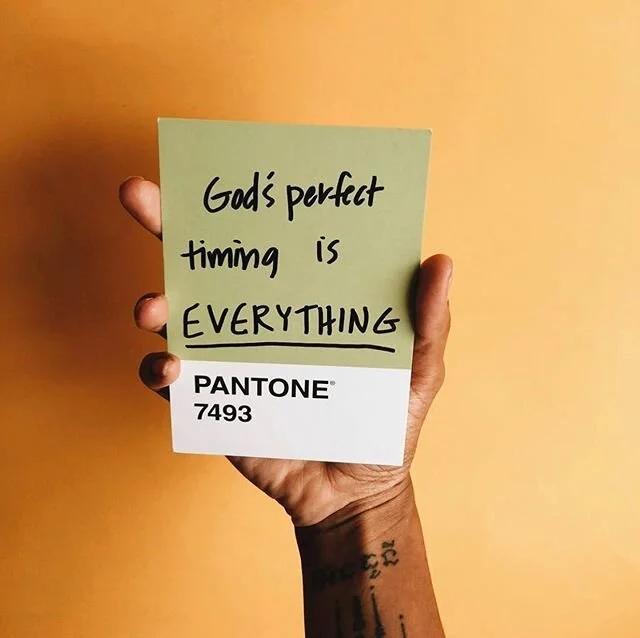 God's perfect
timing is
EVERYTHING
PANTONE®
7493